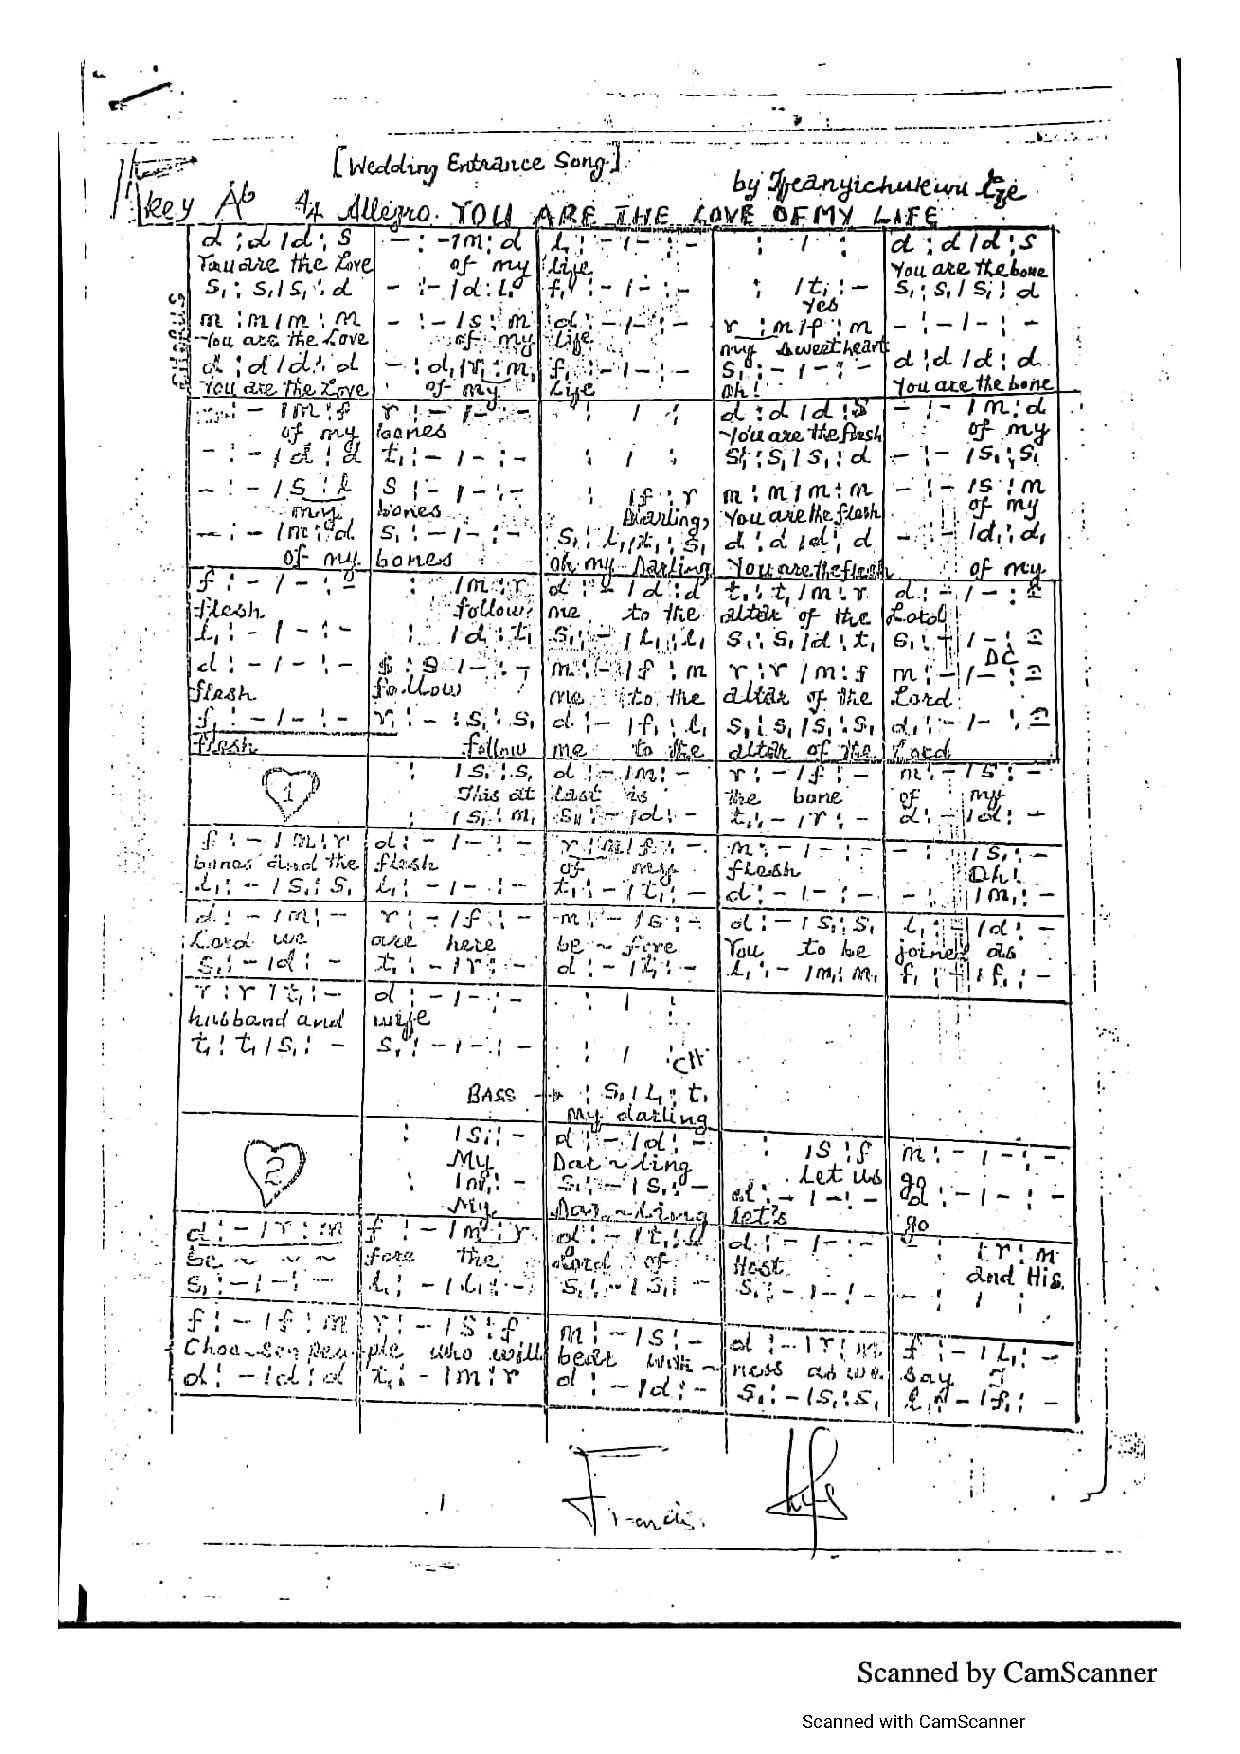 [Wedding Entrance Song]
by Ifeanyichukwu Eze
key Ab 4/4 Allegro. YOU ARE THE LOVE OF MY LIFE
d : d / d : s | - : - / m : d | l, : - / - : - | : / : | d : d / d : s
You are the Love of my life You are the bone
s, : s, / s, : d | - : - / d : l, | f, : - / - : - | : / t, : - | s, : s, / s, : d
Yes
m : m / m : m | - : - / s : m | d : - / - : - | r : m / f : m | - : - / - : -
You are the Love of my life my sweet heart
d : d / d : d | - : d, / r, : m, | f, : - / - : - | s, : - / - : - | d : d / d : d
You are the Love of my Life Oh! You are the bone
- : - / m : f | r : - / - : - | : / : | d : d / d : s | - : - / m : d
of my bones You are the flesh of my
- : - / d : d | t, : - / - : - | : / : | s, : s, / s, : d | - : - / s, : s,
- : - / s : l | s : - / - : - | : / f : r | m : m / m : m | - : - / s : m
my bones Darling, You are the flesh of my
- : - / m : d | s, : - / - : - | s, : l, / t, : s, | d : d / d : d | - : - / d, : d,
of my bones oh my Darling You are the flesh of my
f : - / - : - | : / m : r | d : - / d : d | t, : t, / m : r | d : - / - : -
flesh follow me to the altar of the Lord
l, : - / - : - | : / d : t, | s, : - / l, : l, | s, : s, / d : t, | s, : - / - : -
DC
d : - / - : - | s : s / - : - | m : - / f : m | r : r / m : f | m : - / - : -
flesh follow me to the altar of the Lord
f, : - / - : - | r, : - : s, : s, | d : - / f, : l, | s, : s, / s, : s, | d, : - / - : -
flesh follow me to the altar of the Lord
1 | : / s, : s, | d : - / m : - | r : - / f : - | m : - / s : -
This at last is the bone of my
: / s, : m, | s, : - / d : - | t, : - / r : - | d : - / d : -
f : - / m : r | d : - / - : - | r : m / f : - | m : - / - : - | - : / s, : -
bones and the flesh of my flesh Oh!
l, : - / s, : s, | l, : - / - : - | t, : - / t, : - | d : - / - : - | - : / m, : -
d : - / m : - | r : - / f : - | m : - / s : - | d : - / s, : s, | l, : / d : -
Lord we are here be ~ fore You to be joined as
s, : - / d : - | t, : - / r : - | d : - / t, : - | l, : - / m, : m, | f, : / f, : -
r : r / t, : - | d : - / - : - | : / :
husband and wife
t, : t, / s, : - | s, : - / - : - | : / : CH
BASS : s, / l, : t,
My darling
2 | : / s, : - | d : - / d : - | : / s : f | m : - / - : -
My Dar ~ ling Let us go
: / m, : - | s, : - / s, : - | d : - / - : - | d : - / - : -
My Dar ~ ling Let's go
d : - / r : m | f : - / m : r | d : - / t, : | d : - / - : - | - : / r : m
be ~ ~ ~ fore the Lord of Host and His
s, : - / - : - | l, : - / l, : - | s, : - / s, : - | s, : - / - : - | - : / :
f : - / f : m | r : - / s : f | m : - / s : - | d : - / r : m | f : - / l, : -
Choo-sen peo ple who will bear wit ~ ness as we say
d : - / d : d | t, : - / m : r | d : - / d : - | s, : - / s, : s, | l, : - / f, : -
Francis.
Scanned by CamScanner
Scanned with CamScanner